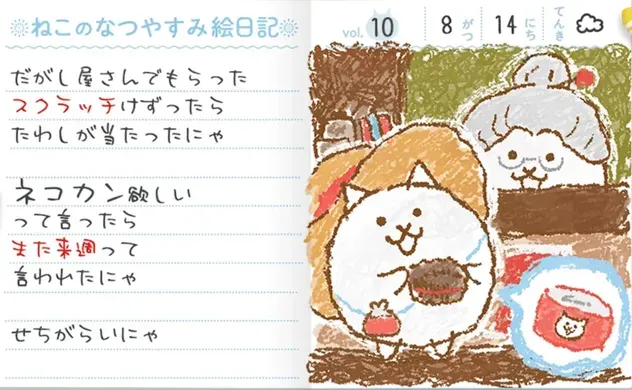 ※ねこのなつやすみ絵日記※
vol. 10 8がつ 14にち てんき
だがし屋さんでもらった
スクラッチけずったら
たわしが当たったにゃ
ネコカン欲しい
って言ったら
また来週って
言われたにゃ
せちがらいにゃ